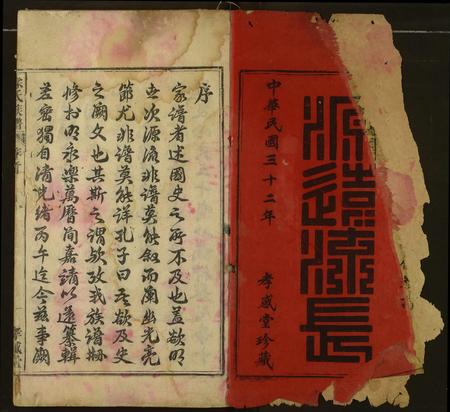 源遠流長
中華民國三十二年 孝感堂珍藏
序
家譜者述國史之所不及也蓋欲明
世次源流非譜莫能叙而闡幽光亮
節尤非譜莫能詳孔子曰吾猶及史
之闕文也其斯之謂歟攷我族譜肪
修於明永樂萬曆间嘉靖以遞纂輯
差密獨自清光緒丙午迄今茲事闕
氏族譜
孝感堂